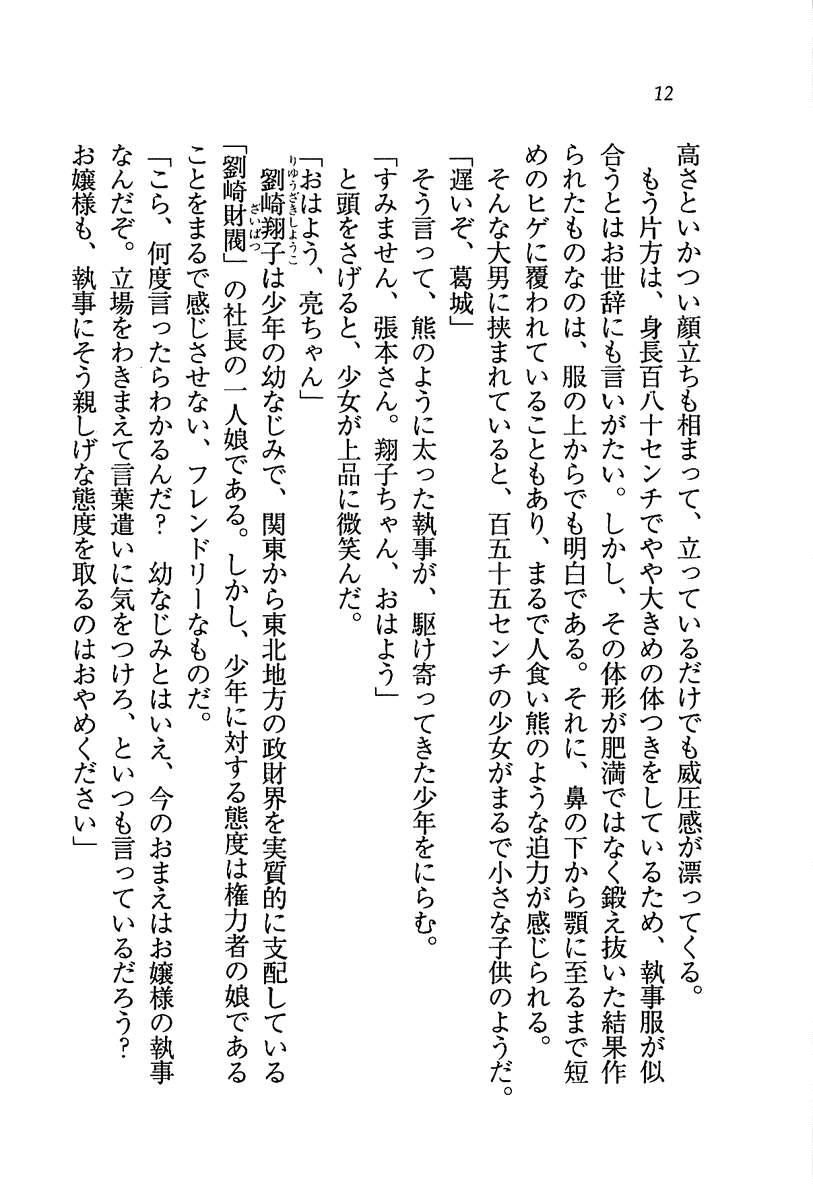 12
高さといかつい顔立ちも相まって、立っているだけでも威圧感が漂ってくる。
もう片方は、身長百八十センチでやや大きめの体つきをしているため、執事服が似
合うとはお世辞にも言いがたい。しかし、その体形が肥満ではなく鍛え抜いた結果作
られたものなのは、服の上からでも明白である。それに、鼻の下から顎に至るまで短
めのヒゲに覆われていることもあり、まるで人食い熊のような迫力が感じられる。
そんな大男に挟まれていると、百五十五センチの少女がまるで小さな子供のようだ。
「遅いぞ、葛城」
そう言って、熊のように太った執事が、駆け寄ってきた少年をにらむ。
「すみません、張本さん。翔子ちゃん、おはよう」
と頭をさげると、少女が上品に微笑んだ。
「おはよう、亮ちゃん」
りゅうざきしょうこ
劉崎翔子は少年の幼なじみで、関東から東北地方の政財界を実質的に支配している
ざいばつ
「劉崎財閥」の社長の一人娘である。しかし、少年に対する態度は権力者の娘である
ことをまるで感じさせない、フレンドリーなものだ。
「こら、何度言ったらわかるんだ？　幼なじみとはいえ、今のおまえはお嬢様の執事
なんだぞ。立場をわきまえて言葉遣いに気をつけろ、といつも言っているだろう？
お嬢様も、執事にそう親しげな態度を取るのはおやめください」